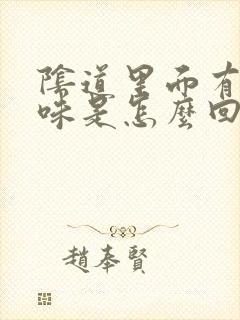 陰道里面有
味是怎麼回
趙奉賢